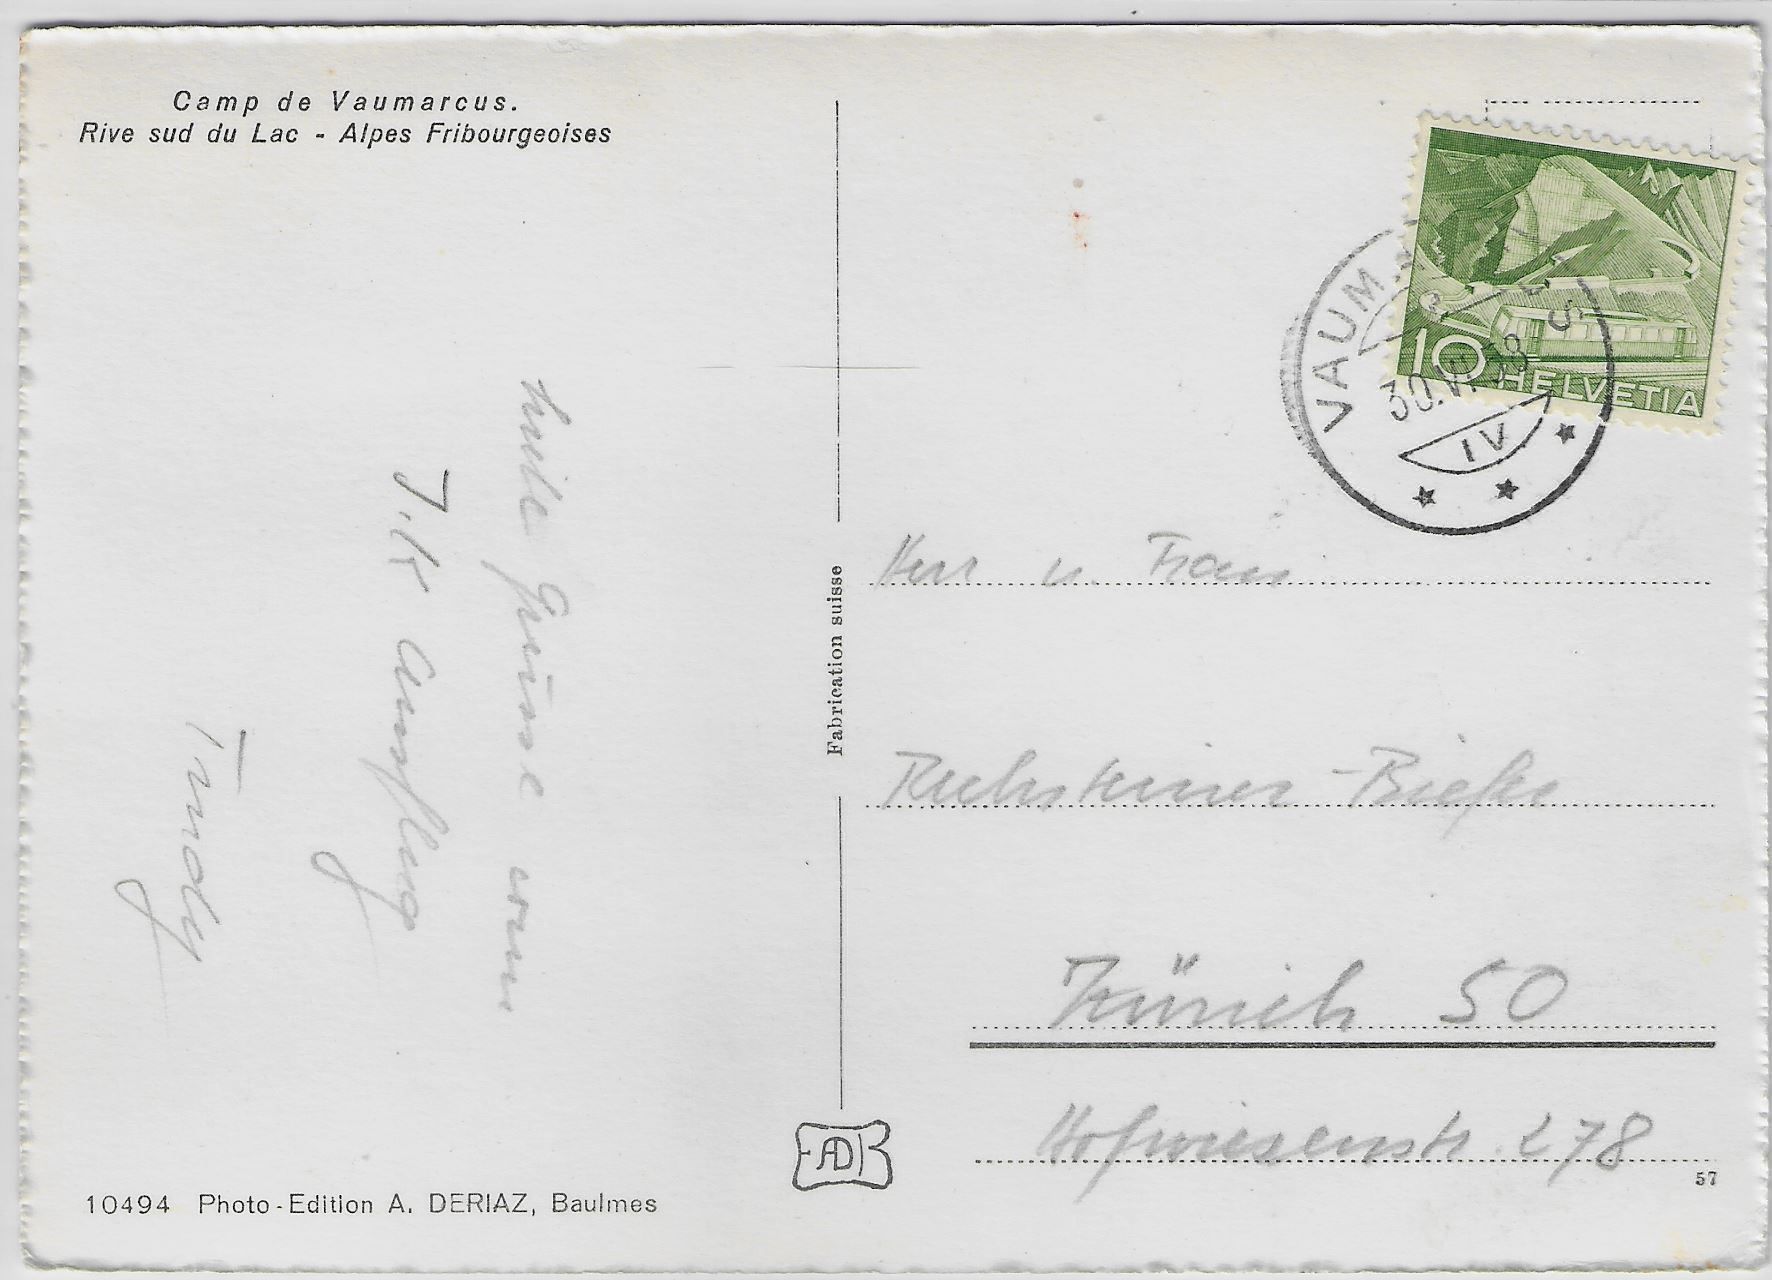 Camp de Vaumarcus.
Rive sud du Lac - Alpes Fribourgeoises
Grüsse vom
J.K Ausflug
Trudy
10494 Photo-Edition A. DERIAZ, Baulmes
Fabrication suisse
10 HELVETIA
30.VI.58
IV
Herr u. Frau
Zürich 50
Hofwiesenstr. 278
57